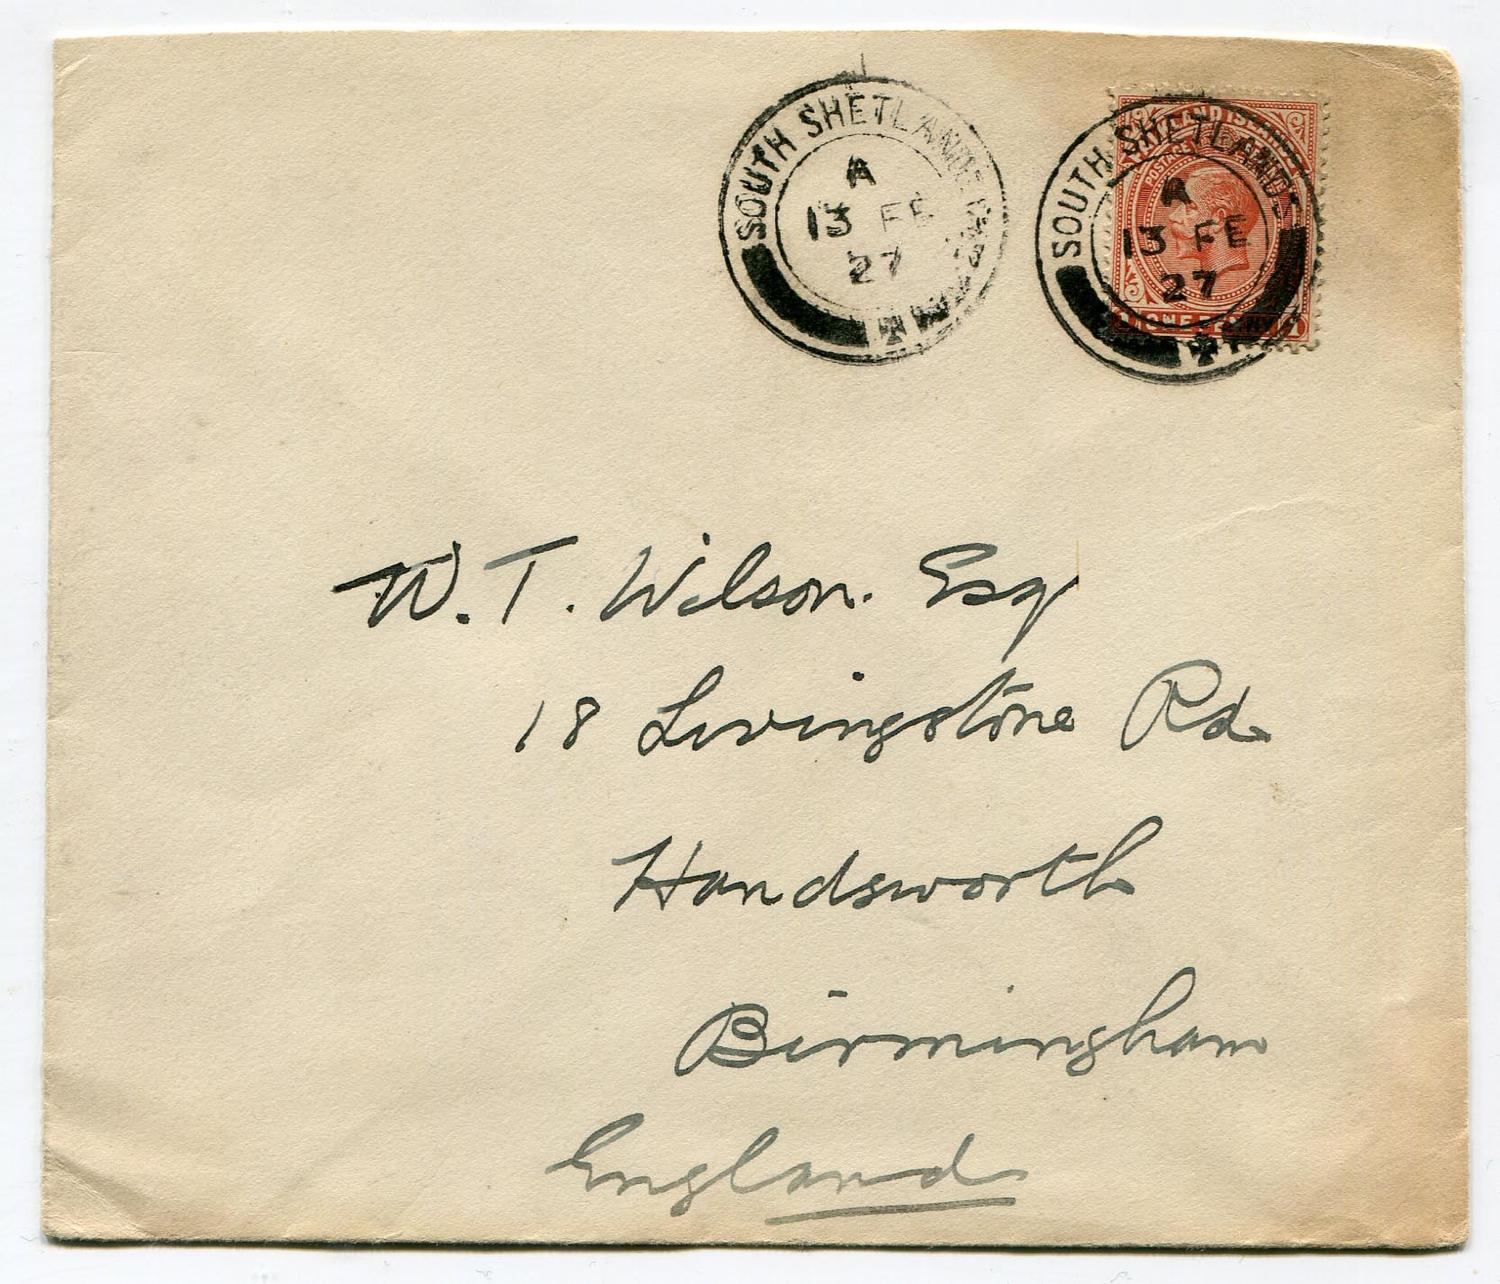 SOUTH SHETLANDS
A
13 FE
27
SOUTH SHETLANDS
A
13 FE
27
POSTAGE
ONE PENNY
W. T. Wilson. Esq
18 Livingstone Rd
Handsworth
Birmingham
England